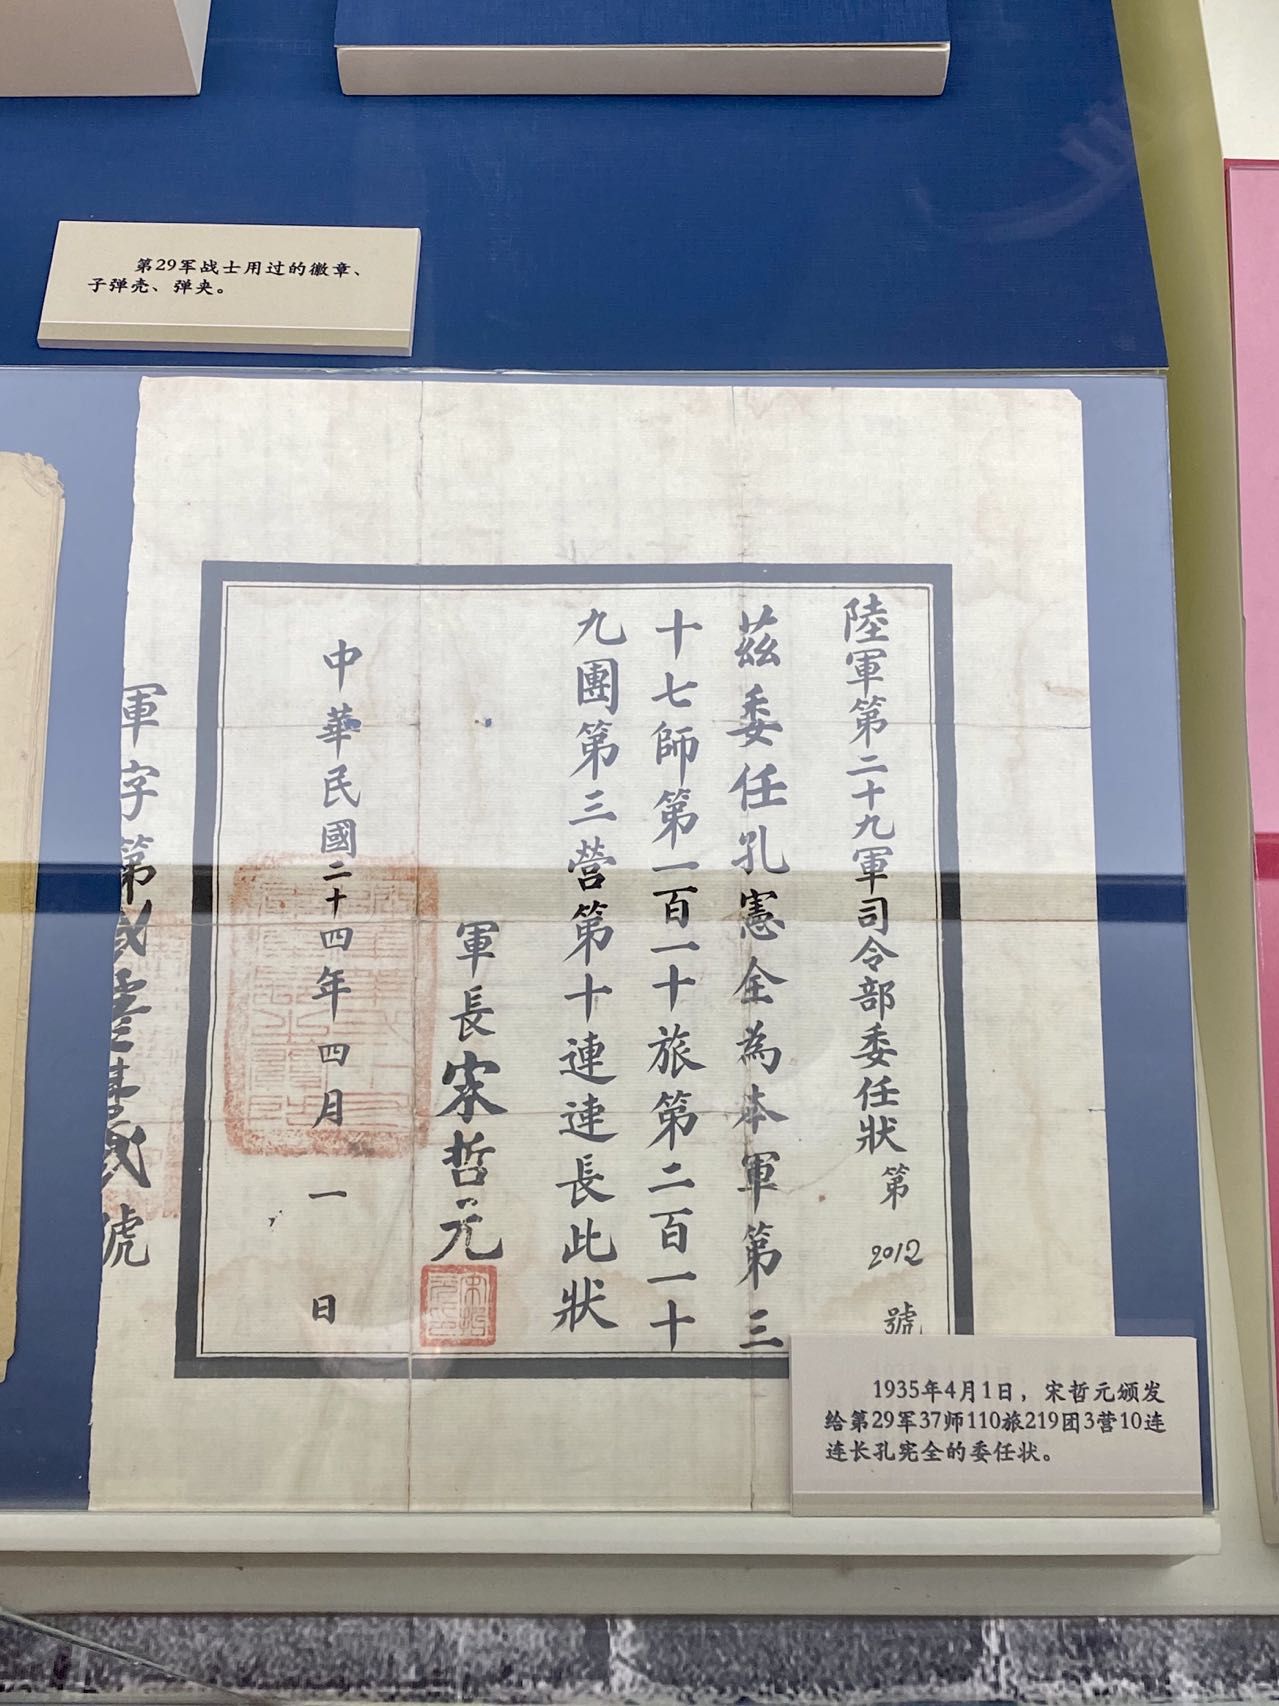 第29军战士用过的徽章、
子弹壳、弹夹。
陸軍第二十九軍司令部委任狀 第2012號
茲委任孔憲全為本軍第三
十七師第一百一十旅第二百一十
九團第三營第十連連長此狀
軍長宋哲元
中華民國二十四年四月一日
軍字第貳零壹貳號
1935年4月1日，宋哲元颁发
给第29军37师110旅219团3营10连
连长孔宪全的委任状。